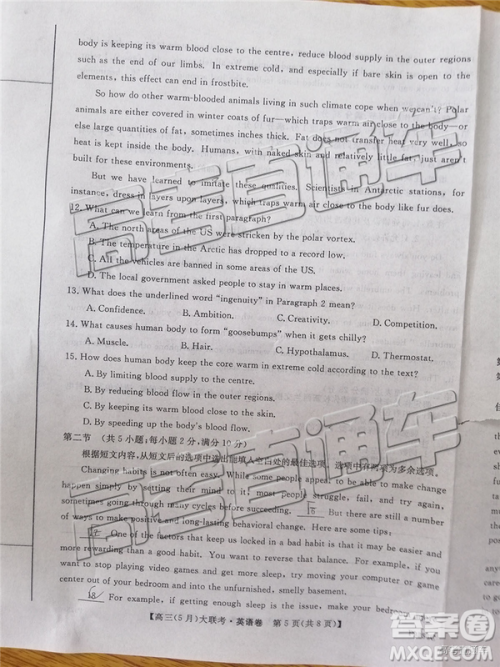 body is keeping its warm blood close to the centre, reduce blood supply in the outer regions
such as the end of our limbs. In extreme cold, and especially if bare skin is open to the
elements, this effect can end in frostbite.
So how do other warm-blooded animals living in such climate cope when we can't? Polar
animals are either covered in winter coats of fur—which traps warm air close to the body—or
else large quantities of fat, sometimes inches thick. Fat does not transfer heat very well, so
heat is kept inside the body. Humans, with naked skin and relatively little fat, just aren't
built for these environments.
But we have learned to imitate these qualities. Scientists in Antarctic stations, for
instance, dress in layers upon layers, which traps warm air close to the body like fur does.
12. What can we learn from the first paragraph?
A. The north areas of US were stricken by the polar vortex.
B. The temperature in the Arctic has dropped to a record low.
C. All the vehicles are banned in some areas of the US.
D. The local government asked people to stay in warm places.
13. What does the underlined word "ingenuity" in Paragraph 2 mean?
A. Confidence. B. Ambition. C. Creativity. D. Competition.
14. What causes human body to form "goosebumps" when it gets chilly?
A. Muscle. B. Hair. C. Hypothalamus. D. Thermostat.
15. How does human body keep the core warm in extreme cold according to the text?
A. By limiting blood supply to the centre.
B. By reducing blood flow in the outer regions.
C. By keeping warm blood close to the skin.
D. By speeding up the body's blood flow.
第二节 (共5小题;每小题2分,满分10分)
根据短文内容,从短文后的选项中选出能填入空白处的最佳选项。选项中有两项为多余选项。
Changing habits is not often easy. While some people appear to be able to make change
happen simply by setting their mind to it, most people struggle, fail, and try again,
sometimes going through many cycles before succeeding. 16 But there are still a number
of ways to make positive and long-lasting behavioral change. Here are some tips;
17 One of the factors that keeps us locked in a bad habit is that it may be easier and
more rewarding than a good habit. You want to reverse that balance. For example, if you
want to stop playing video games and get more sleep, try moving your computer or game
center out of your bedroom and into the unfurnished, unheated basement.
18 For example, if getting enough sleep is the goal, make your bedroom more
【高三(5月)大联考·英语卷 第5页(共8页)】
高三直通车
高三直通车
答案圈
MXQE.COM